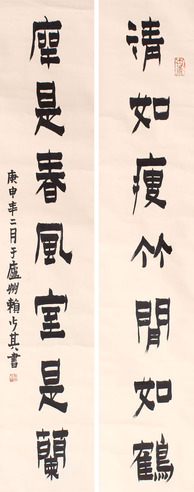 清如瘦竹閒如鶴
座是春風室是蘭
庚申年二月于廬州賴少其書